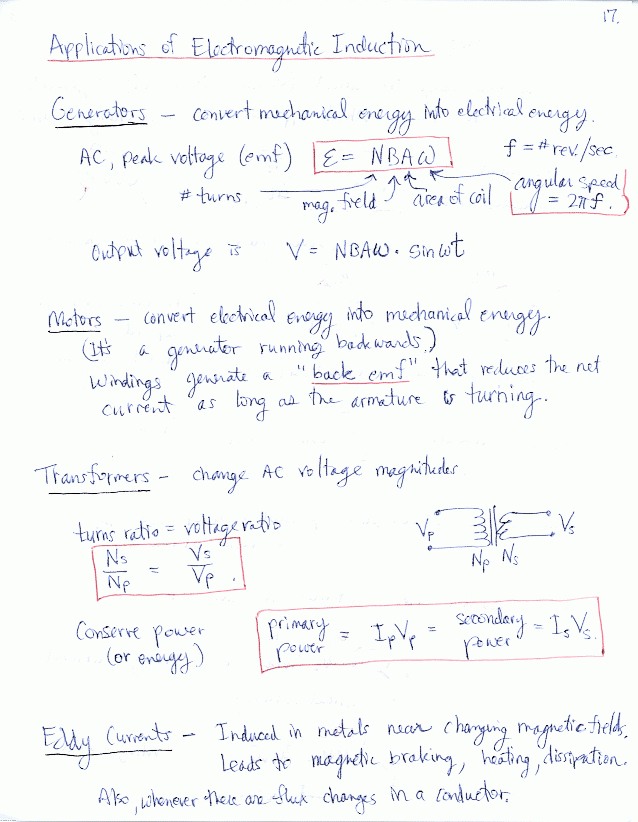 17.
Applications of Electromagnetic Induction
Generators – convert mechanical energy into electrical energy.
AC, peak voltage (emf) ℰ = NBAω f = # rev./sec
# turns mag. field area of coil angular speed
= 2πf.
Output voltage is V = NBAω · sin ωt
Motors – convert electrical energy into mechanical energy.
(It's a generator running backwards.)
Windings generate a "back emf" that reduces the net
current as long as the armature is turning.
Transformers – change AC voltage magnitudes
turns ratio = voltage ratio
Ns/Np = Vs/Vp.
Vp Np Ns Vs
Conserve power
(or energy)
primary power = IpVp = secondary power = IsVs.
Eddy Currents – Induced in metals near changing magnetic fields.
Leads to magnetic braking, heating, dissipation.
Also, whenever there are flux changes in a conductor.